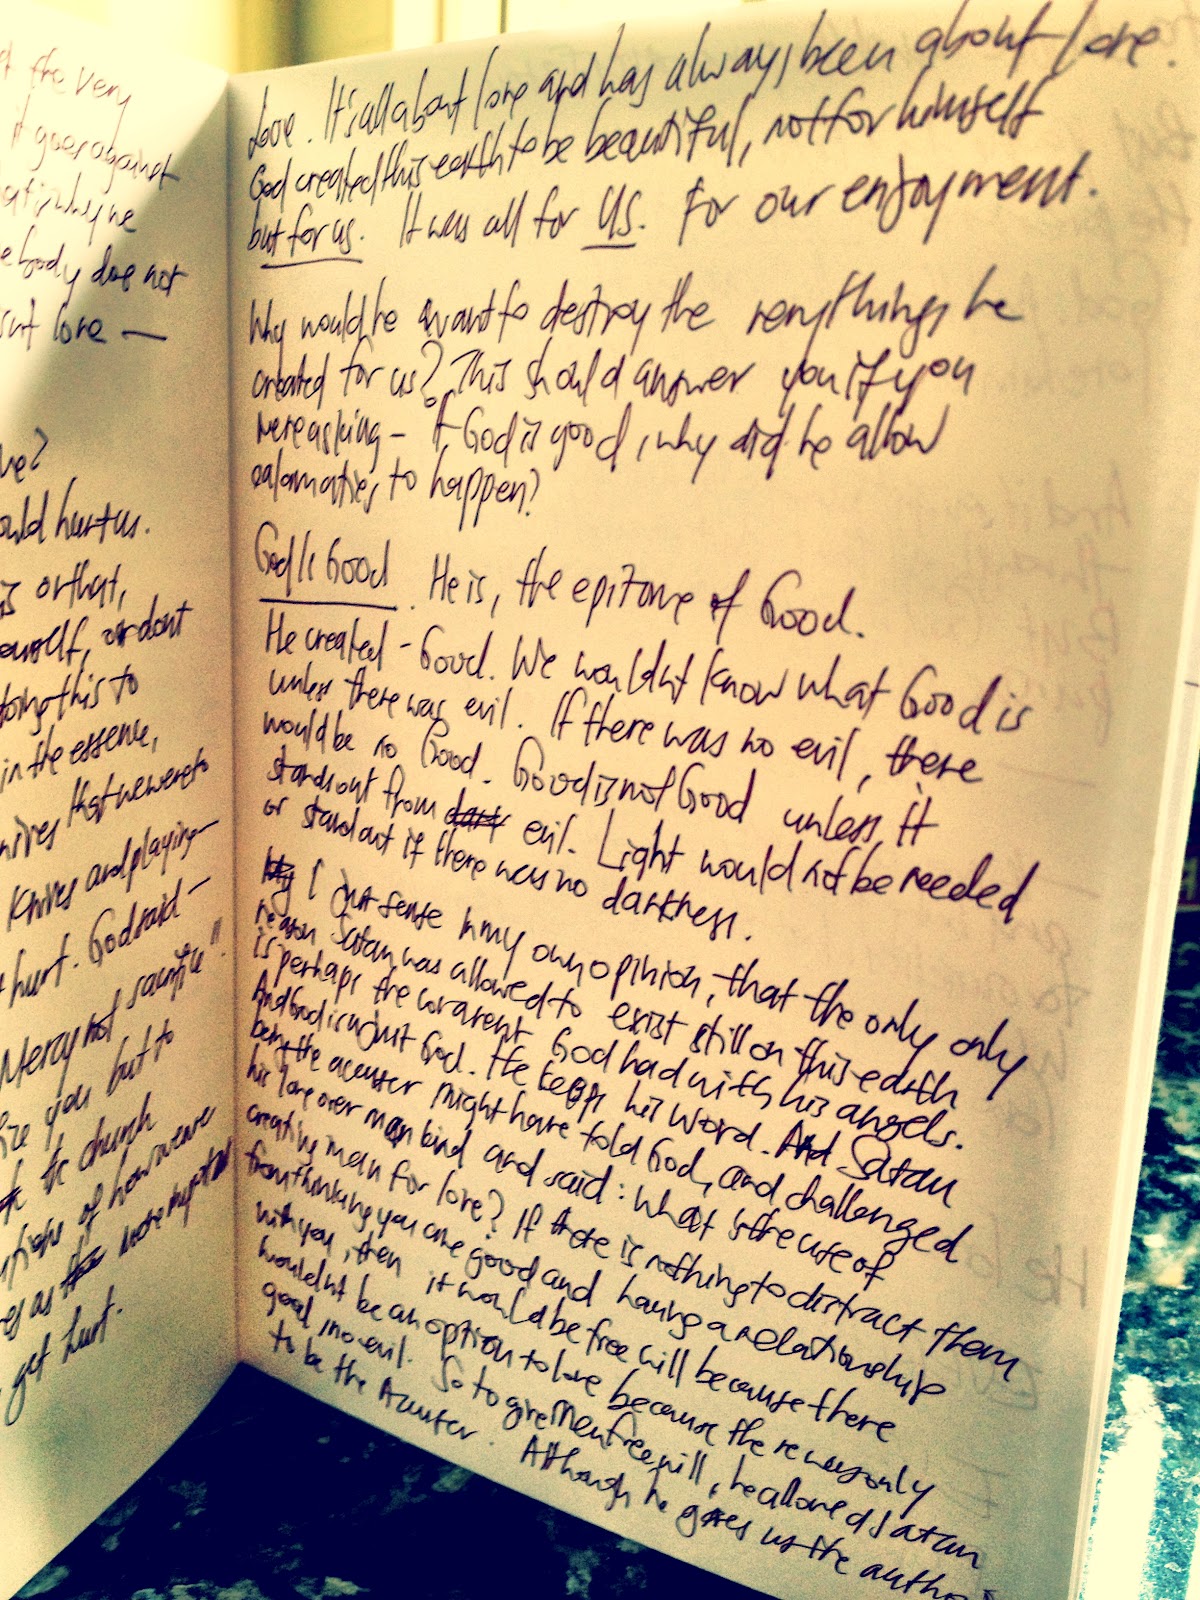 t the very
it goes against
that is why we
e body does not
out love —
ve?
ould hurt us.
is or that,
ourself, or dont
doing this to
in the essence,
knives that we were to
knives and playing
hurt. God said —
Mercy not sacrifice"
you but to
the church
of how we are
es as the more important
get hurt.
Love. It's all about love and has always been about love.
God created this earth to be beautiful, not for himself
but for us. It was all for US. For our enjoyment.
Why would he want to destroy the very things he
created for us? This should answer you if you
were asking - If God is good, why did he allow
calamaties to happen?
God Is Good. He is, the epitome of Good.
He created - Good. We wouldnt know what Good is
unless there was evil. If there was no evil, there
would be no Good. Good is not Good unless it
stands out from dark evil. Light would not be needed
or stand out if there was no darkness.
My I just sense in my own opinion, that the only only
reason Satan was allowed to exist still on this earth
is perhaps the covanent God had with his angels.
And God is a just God. He keeps his word. And Satan
being the accuser might have told God, and challenged
his love over man kind and said: what is the use of
creating man for love? If there is nothing to distract them
from thinking you are good and having a relationship
with you, then it would be free will because there
wouldnt be an option to love because there was only
good, no evil. So to give Men free will, he allowed Satan
to be the Accuser. Although he gives us the